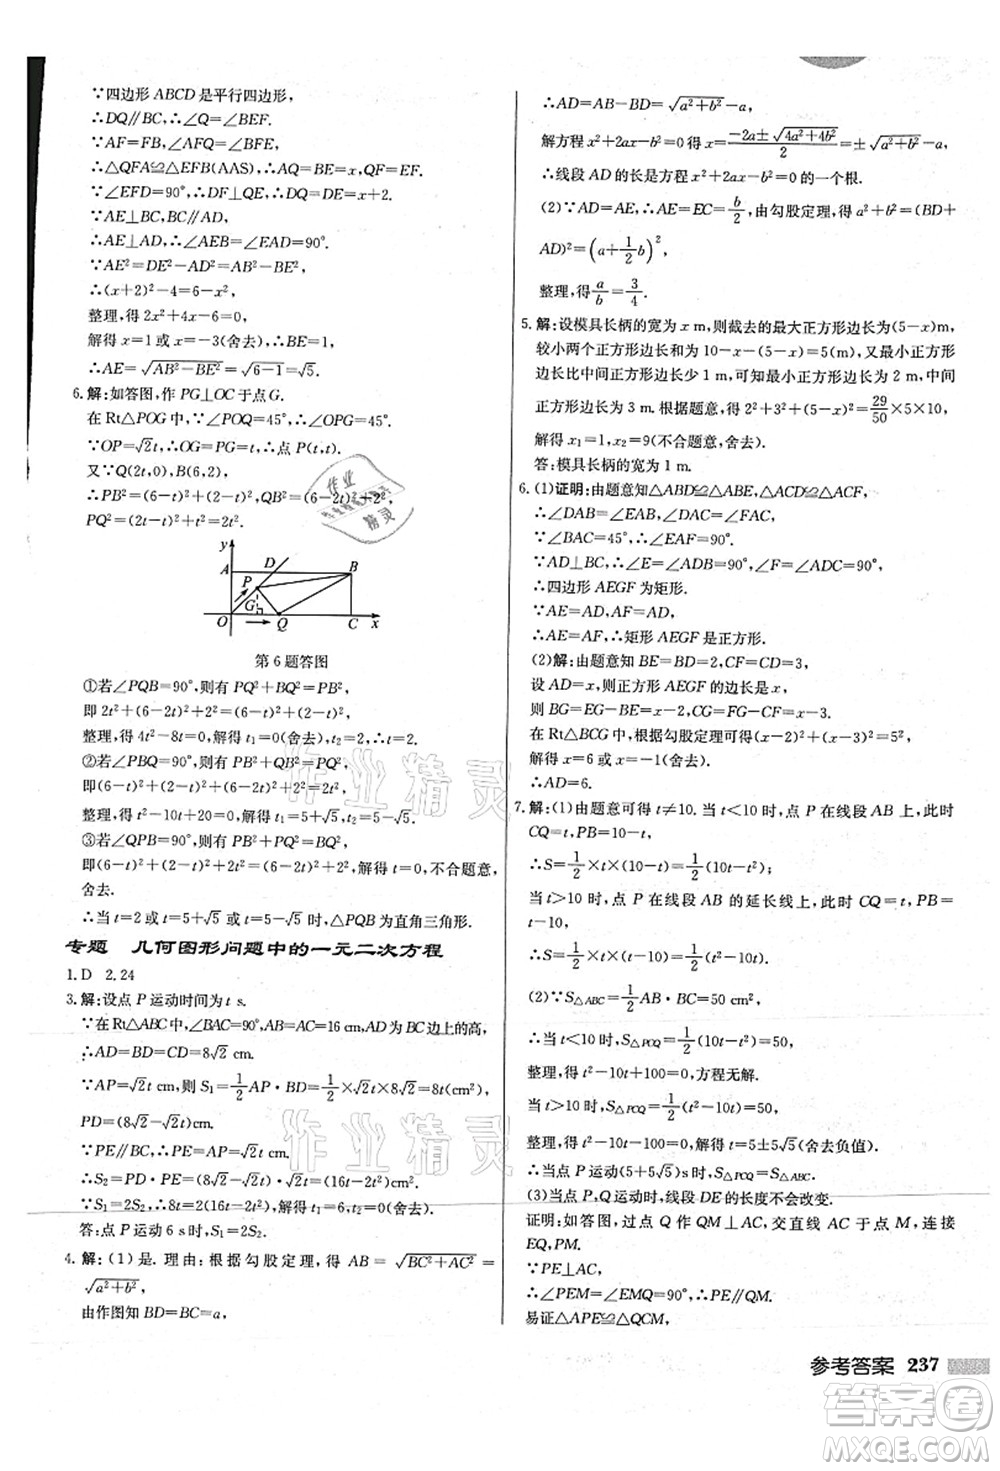 ∵四边形 ABCD 是平行四边形,
∴DQ∥BC,∴∠Q=∠BEF.
∵AF=FB,∠AFQ=∠BFE,
∴△QFA≌△EFB(AAS),∴AQ=BE=x.
∵∠EFD=90°,∴DF⊥QE,∴DQ=DE=x+2.
∵AE⊥BC,BC∥AD,
∴AE⊥AD,∴∠AEB=∠EAD=90°.
∵AE²=DE²-AD²=AB²-BE²,
∴(x+2)²-4=6-x²,
整理,得 2x²+4x-6=0,
解得 x=1 或 x=-3(舍去),∴BE=1,
∴AE=√(AB²-BE²)=√(6-1)=√5.
6.解:如答图,作 PG⊥OC 于点 G.
在 Rt△POG 中,∵∠POQ=45°,∴∠OPG=45°.
∵OP=√2t,∴OG=PG=t,∴点 P(t,t).
又∵Q(2t,0),B(6,2),
∴PB²=(6-t)²+(2-t)²,QB²=(6-2t)²+2²,
PQ²=(2t-t)²+t²=2t².
y
A D B
P
G
O Q C x
第 6 题答图
①若∠PQB=90°,则有 PQ²+BQ²=PB²,
即 2t²+[(6-2t)²+2²]=(6-t)²+(2-t)²,
整理,得 4t²-8t=0,解得 t₁=0(舍去),t₂=2,∴t=2.
②若∠PBQ=90°,则有 PB²+QB²=PQ²,
即[(6-t)²+(2-t)²]+[(6-2t)²+2²]=2t²,
整理,得 t²-10t+20=0,解得 t=5±√5.
③若∠QPB=90°,则有 PQ²+PB²=QB²,
即[(6-t)²+(2-t)²]+2t²=(6-2t)²+2²,解得 t=0,不合题意,
舍去.
∴当 t=2 或 t=5+√5 或 t=5-√5 时,△PQB 为直角三角形.
专题 几何图形问题中的一元二次方程
1.D 2.24
3.解:设点 P 运动时间为 t s.
∵在 Rt△ABC 中,∠BAC=90°,AB=AC=16 cm,AD 为 BC 边上的高,
∴AD=BD=CD=8√2 cm.
∵AP=√2t cm,则 S₁=1/2AP·BD=1/2×√2t×8√2=8t(cm²),
PD=(8√2-√2t)cm.
∵PE∥BC,∴PE=AP=√2t cm.
∴S₂=PD·PE=(8√2-√2t)·√2t(cm²).
∵S₁=2S₂,∴8t=2(8√2-√2t)·√2t,解得 t=6.
答:点 P 运动 6 s 时,S₁=2S₂.
4.解:(1)是. 理由:根据勾股定理,得 AB=√(BC²+AC²)=
√(a²+b²),
由作图知 BD=BC=a,
∴AD=AB-BD=√(a²+b²)-a,
解方程 x²+2ax-b²=0 得 x=(-2a±√(4a²+4b²))/2=±√(a²+b²)-a,
∴线段 AD 的长是方程 x²+2ax-b²=0 的一个根.
(2)∵AD=AE,∴AE=EC=b/2,由勾股定理,得 a²+b²=(BD+
AD)²=(a+1/2b)²,
整理,得a/b=3/4.
5.解:设模具长柄的宽为 x m,则截去的最大正方形边长为(5-x)m,
较小两个正方形边长和为 10-x-(5-x)=5(m),又最小正方形边长
比中间正方形边长少 1 m,可知最小正方形边长为 2 m,中间正方形
边长为 3 m.根据题意,得 2²+3²+(5-x)²=29/50×5×10,
解得 x₁=1,x₂=9(不合题意,舍去).
答:模具长柄的宽为 1 m.
6.(1)证明:由题意知△ABD≌△ABE,△ACD≌△ACF,
∴∠DAB=∠EAB,∠DAC=∠FAC.
∵∠BAC=45°,∴∠EAF=90°.
∵AD⊥BC,∴∠E=∠ADB=90°,∠F=∠ADC=90°,
∴四边形 AEGF 为矩形.
∵AE=AD,AF=AD,
∴AE=AF,∴矩形 AEGF 是正方形.
(2)解:由题意知 BE=BD=2,CF=CD=3,
设 AD=x,则正方形 AEGF 的边长是 x,
则 BG=EG-BE=x-2,CG=FG-CF=x-3.
在 Rt△BCG 中,根据勾股定理可得(x-2)²+(x-3)²=5²,
解得 x=6 或 x=-1(舍去).
∴AD=6.
7.解:(1)由题意可得 t≠10. 当 t<10 时,点 P 在线段 AB 上,此时
CQ=t,PB=10-t,
∴S=1/2×t×(10-t)=1/2(10t-t²);
当 t>10 时,点 P 在线段 AB 的延长线上,此时 CQ=t,PB=
t-10,
∴S=1/2×t×(t-10)=1/2(t²-10t).
(2)∵S△ABC=1/2AB·BC=50(cm²),
∴当 t<10 时,S△PCQ=1/2(10t-t²)=50,
整理,得 t²-10t+100=0,方程无解.
当 t>10 时,S△PCQ=1/2(t²-10t)=50,
整理,得 t²-10t-100=0,解得 t=5±5√5(舍去负值).
∴当点 P 运动(5+5√5)s 时,S△PCQ=S△ABC.
(3)当点 P、Q 运动时,线段 DE 的长度不会改变.
证明:如答图,过点 Q 作 QM⊥AC,交直线 AC 于点 M,连接
EQ,PM.
∵PE⊥AC,
∴∠PEM=∠EMQ=90°,∴PE∥QM.
易证△APE≌△QCM,
参考答案 237
作业精灵
作业精灵
作业精灵
答案圈
MXQE.COM